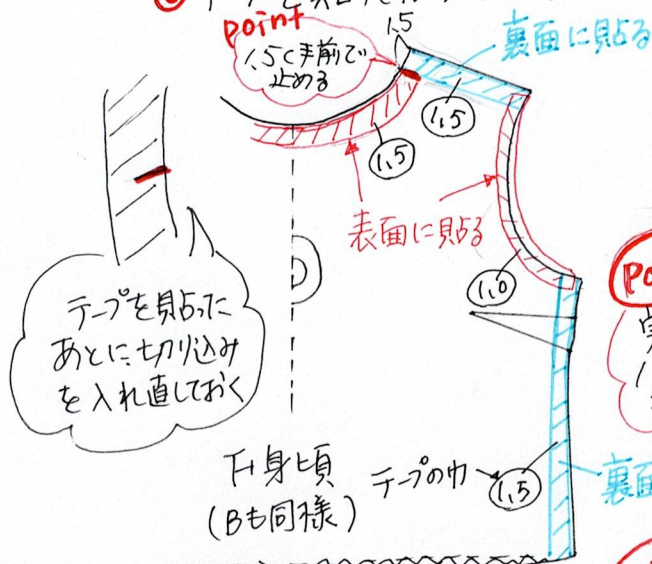 point
1.5
1.5く手前で
止める
裏面に貼る
1.5
1.5
表面に貼る
1.0
テープを貼った
あとに、切り込み
を入れ直しておく
F身頃
(Bも同様)
テープの巾
1.5
裏面